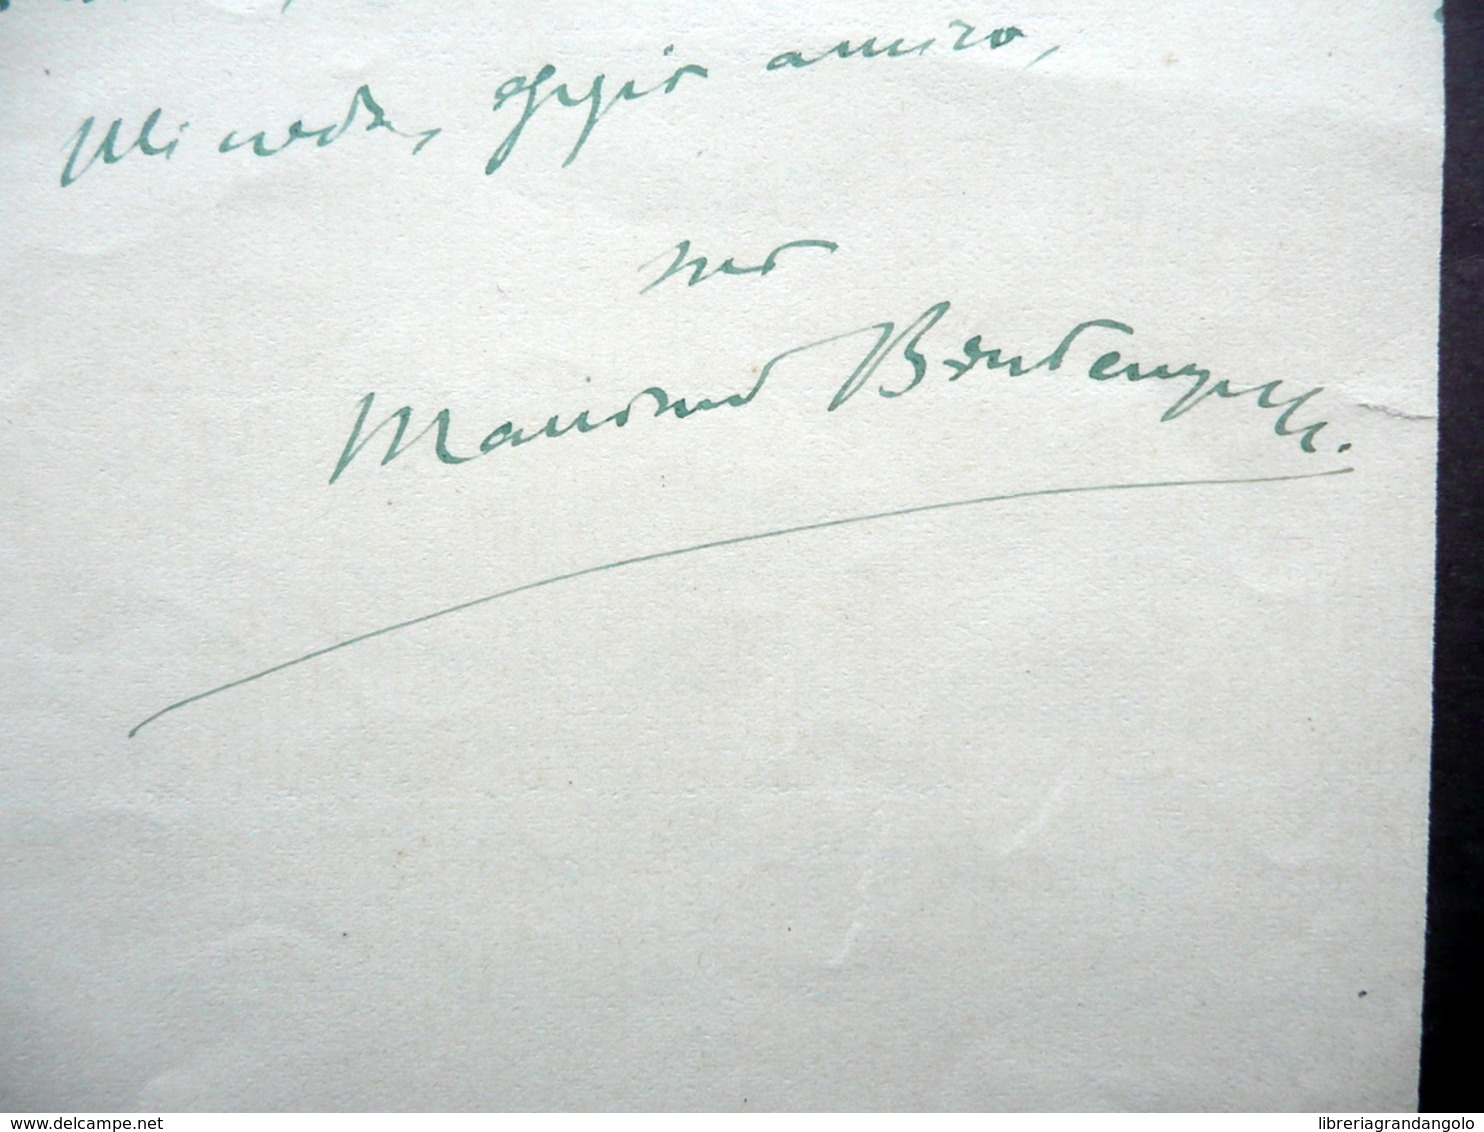 Mi creda, egregio amico,
suo
Massimo Bontempelli.
www.delcampe.net
libreriagrandangolo